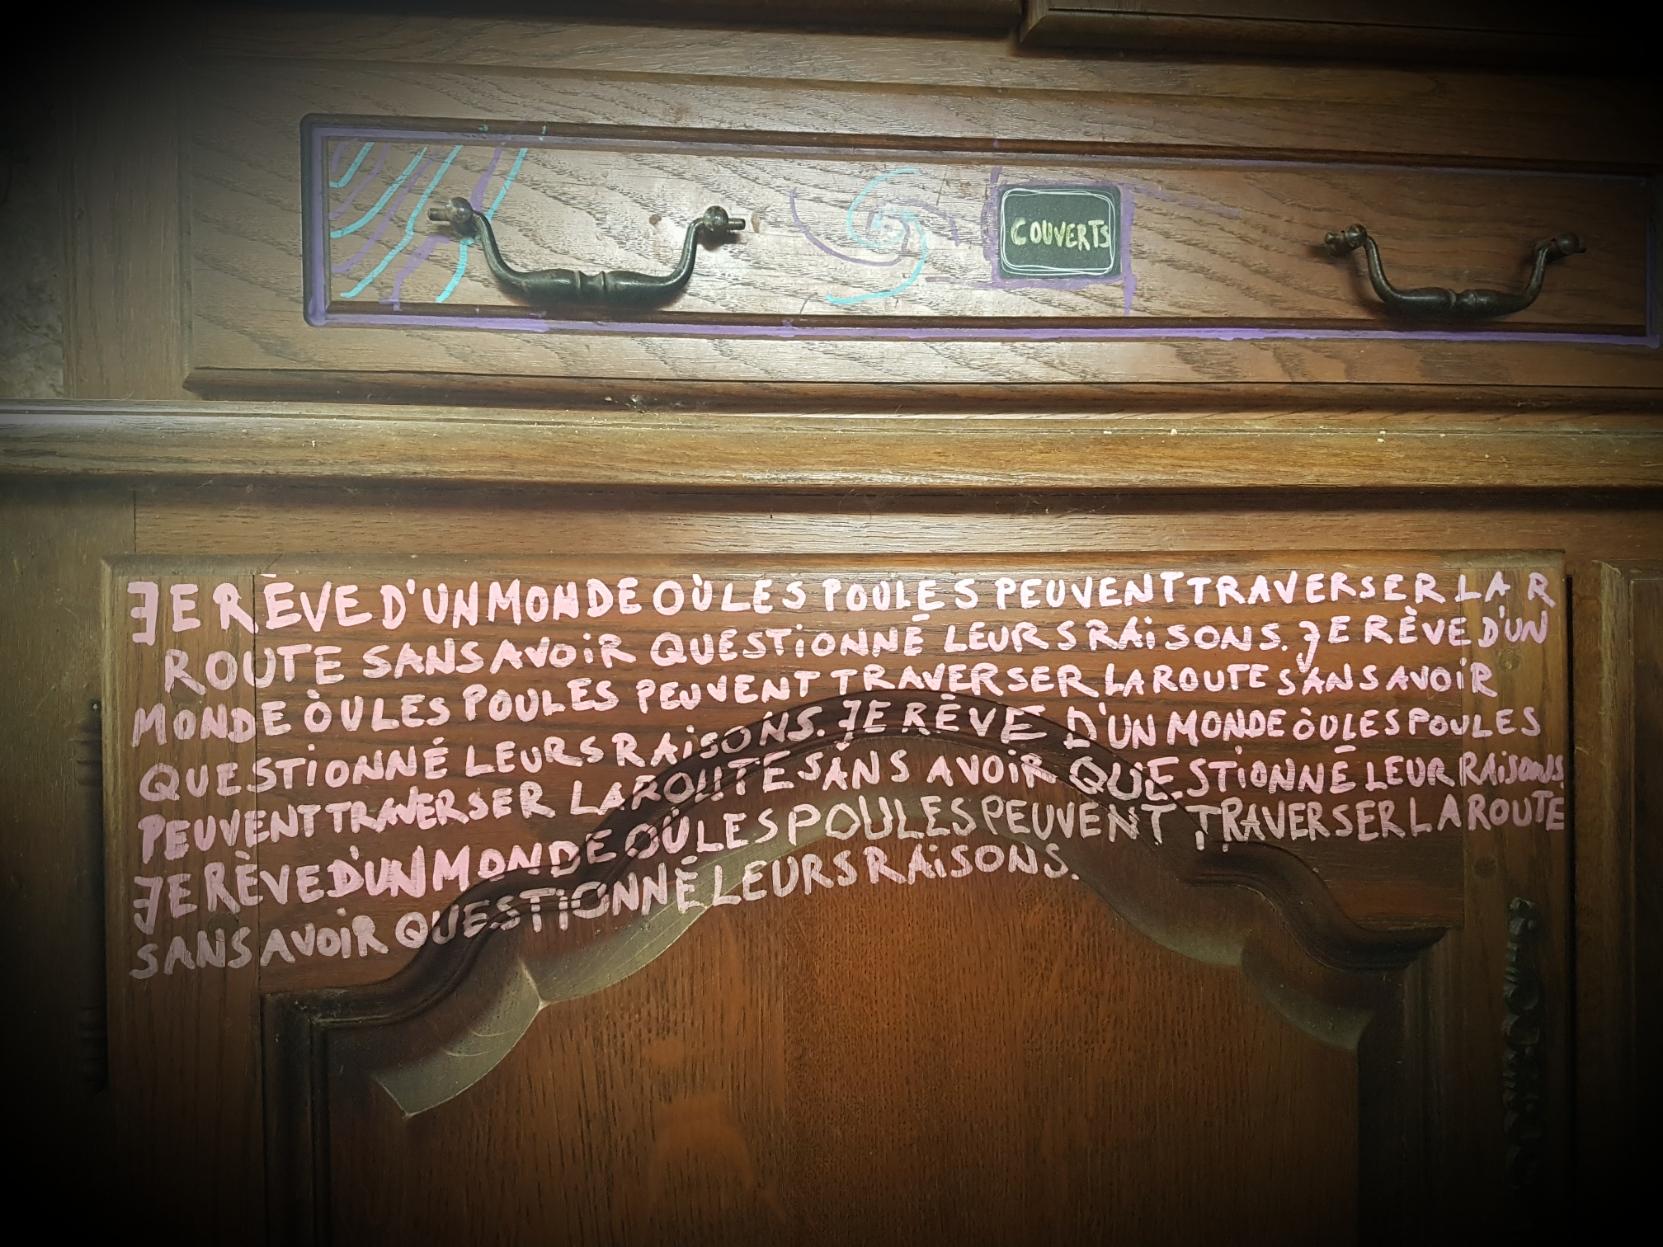 COUVERTS
JE RÊVE D'UN MONDE OÙ LES POULES PEUVENT TRAVERSER LA R
ROUTE SANS AVOIR QUESTIONNÉ LEURS RAiSONS. JE RÊVE D'UN
MONDE ÒU LES POULES PEUVENT TRAVERSER LA ROUTE SANS AVOIR
QUESTIONNÉ LEURS RAiSONS. JE RÊVE D'UN MONDE ÒU LES POULES
PEUVENT TRAVERSER LA ROUTE SANS AVOIR QUESTIONNÉ LEUR RAiSONS
JE RÊVE D'UN MONDE OÙ LES POULES PEUVENT TRAVERSER LA ROUTE
SANS AVOIR QUESTIONNÉ LEURS RAiSONS.